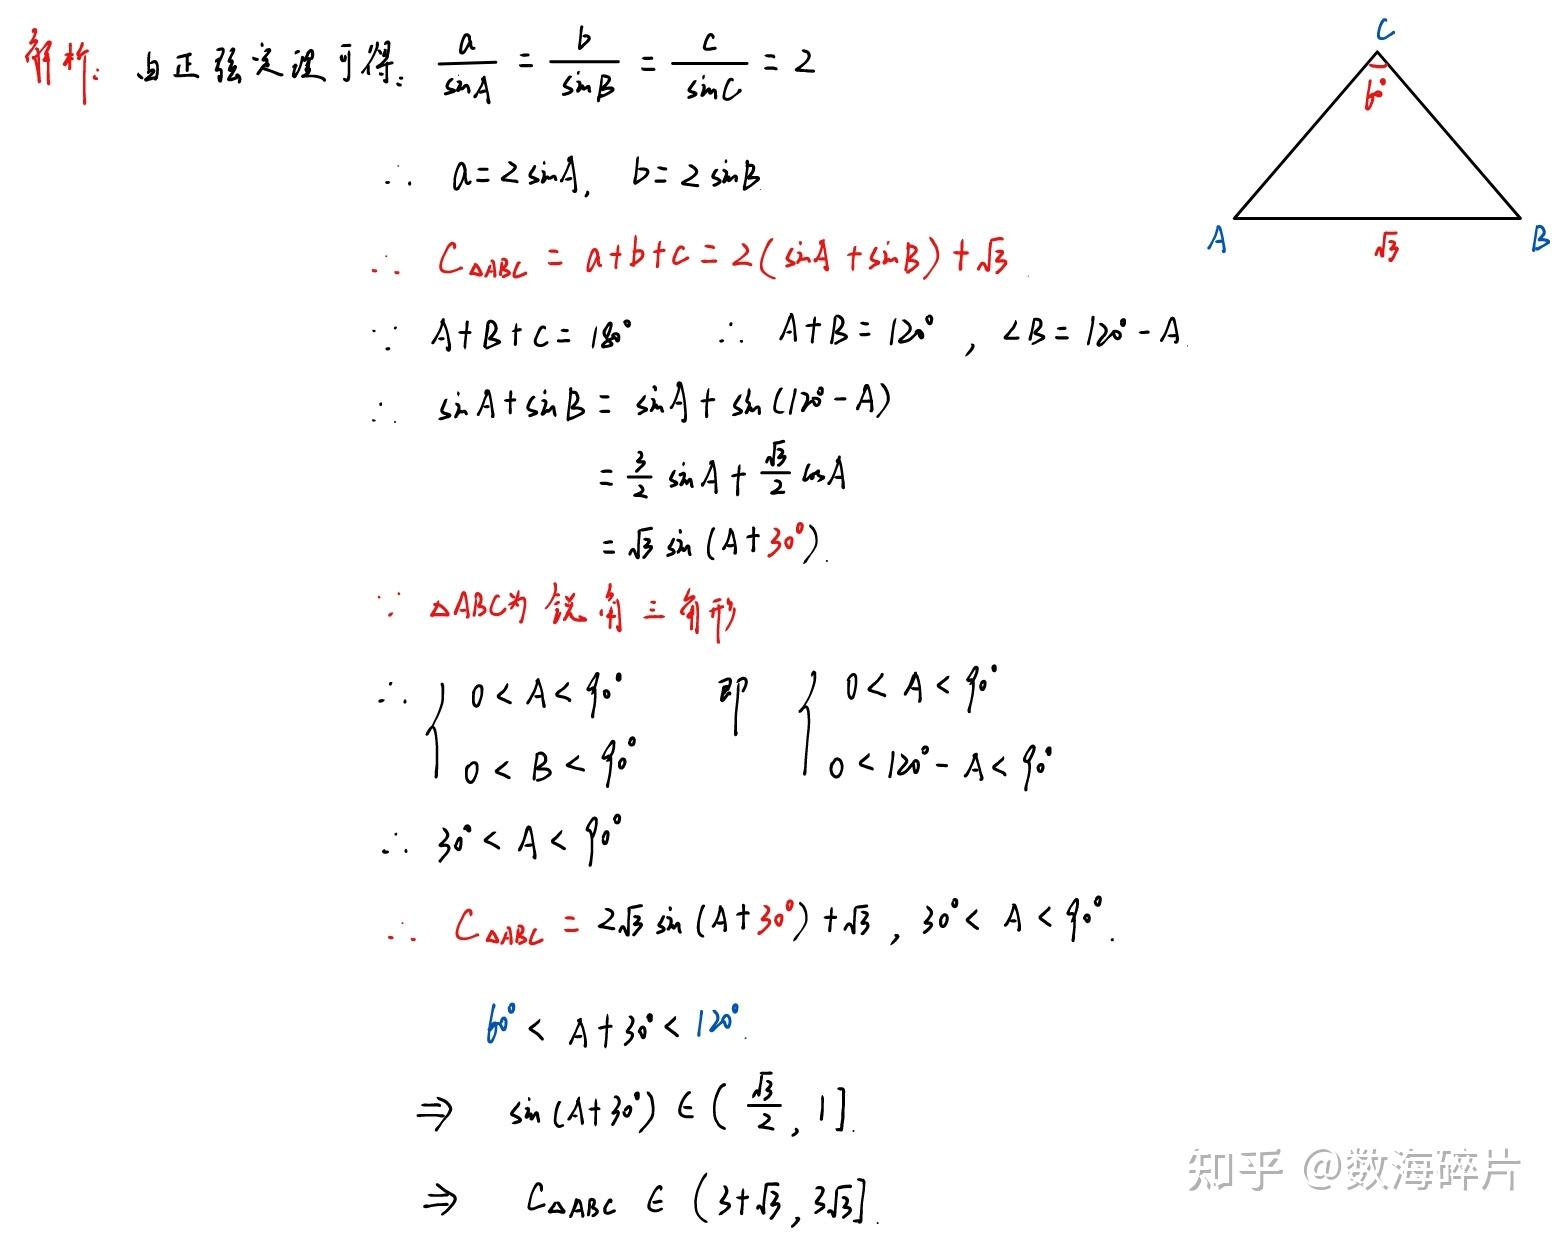 解析: 由正弦定理可得: a/sinA = b/sinB = c/sinC = 2
∴ a=2sinA, b=2sinB
∴ C△ABC = a+b+c = 2(sinA+sinB)+√3
∵ A+B+C=180° ∴ A+B=120°, ∠B=120°-A
∴ sinA+sinB = sinA+sin(120°-A)
= 3/2 sinA + √3/2 cosA
= √3 sin(A+30°).
∵ △ABC为锐角三角形
∴ { 0<A<90° 即 { 0<A<90°
0<B<90° 0<120°-A<90°
∴ 30°<A<90°
∴ C△ABC = 2√3 sin(A+30°)+√3, 30°<A<90°.
60° < A+30° < 120°.
⇒ sin(A+30°) ∈ (√3/2, 1].
⇒ C△ABC ∈ (3+√3, 3√3].
C
60°
A
√3
B
知乎 @数海碎片